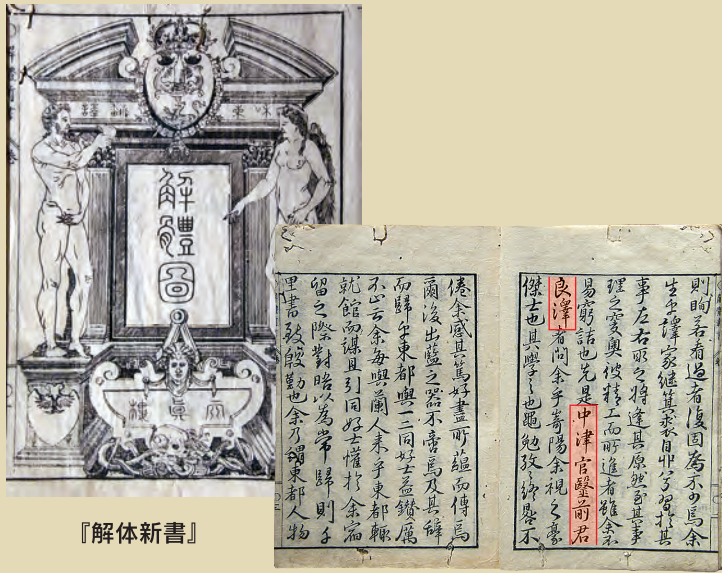 解體圖
『解体新書』
則眴若看過者復固為不少焉余
生乎譯家繼箕裘自丱習於其
事左右取之將逢其原然至其事
理之窔奧彼精工而所進者雖余不
易窮詰也先是中津官醫前君
良澤者問余乎嵜陽余視之豪
傑士也其學之也黽勉孜々終晷不
倦余感其篤好盡所蘊而傳焉
爾後出藍之器不啻焉及其辞
而歸乎東都與一二同好士益鑽厲
不止云余每與蘭人来乎東都輒
就館而謀且引同好士懽於余宿
留之際對晤以為常歸則千
里書致慇懃也余乃謂東都人物